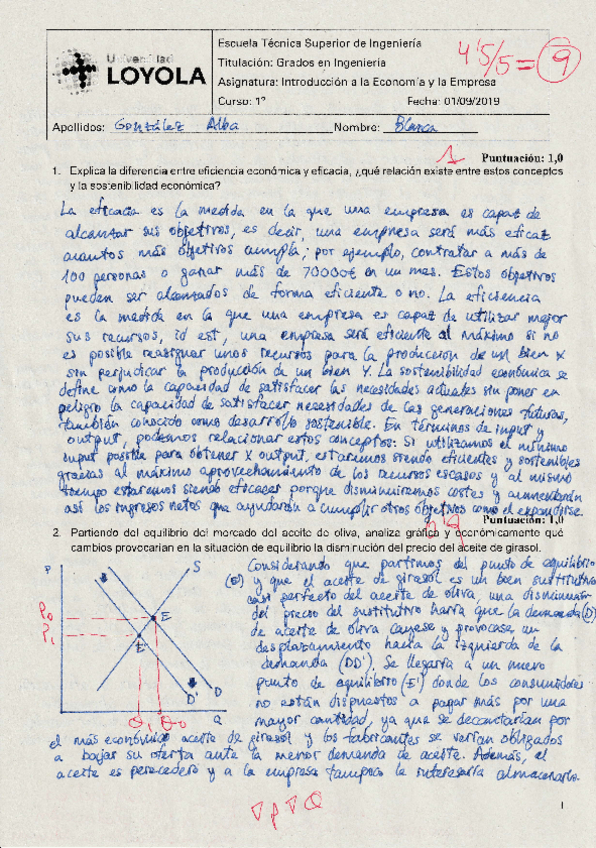 Universidad
LOYOLA
Escuela Técnica Superior de Ingeniería
Titulación: Grados en Ingeniería
Asignatura: Introducción a la Economía y la Empresa
Curso: 1º Fecha: 01/09/2019
4'5/5 = 9
Apellidos: González Alba Nombre: Blanca
1 Puntuación: 1,0
1. Explica la diferencia entre eficiencia económica y eficacia, ¿qué relación existe entre estos conceptos
y la sostenibilidad económica?
La eficacia es la medida en la que una empresa es capaz de
alcanzar sus objetivos, es decir, una empresa será más eficaz
cuantos más objetivos cumpla; por ejemplo, contratar a más de
100 personas o ganar más de 70000€ en un mes. Estos objetivos
pueden ser alcanzados de forma eficiente o no. La eficiencia
es la medida en la que una empresa es capaz de utilizar mejor
sus recursos, id est, una empresa será eficiente al máximo si no
es posible reasignar unos recursos para la producción de un bien X
sin perjudicar la producción de un bien Y. La sostenibilidad económica se
define como la capacidad de satisfacer las necesidades actuales sin poner en
peligro la capacidad de satisfacer necesidades de las generaciones futuras,
también conocido como desarrollo sostenible. En términos de input y
output, podemos relacionar estos conceptos: Si utilizamos el mínimo
input posible para obtener X output, estaremos siendo eficientes y sostenibles
gracias al máximo aprovechamiento de los recursos escasos y al mismo
tiempo estaremos siendo eficaces porque disminuiremos costes y aumentarán
así los ingresos netos que ayudarán a cumplir otros objetivos como el expandirse.
0'9 Puntuación: 1,0
2. Partiendo del equilibrio del mercado del aceite de oliva, analiza gráfica y económicamente qué
cambios provocarían en la situación de equilibrio la disminución del precio del aceite de girasol.
P
S
P0
P1
E
E'
D'
D
Q1 Q0
Q
Considerando que partimos del punto de equilibrio
(E) y que el aceite de girasol es un bien sustitutivo
casi perfecto del aceite de oliva, una disminución
del precio del sustitutivo haría que la demanda (D)
de aceite de oliva cayese y provocase un
desplazamiento hacia la izquierda de la
demanda (DD'). Se llegaría a un nuevo
punto de equilibrio (E') donde los consumidores
no están dispuestos a pagar más por una
mayor cantidad, ya que se decantarían por
el más económico aceite de girasol y los fabricantes se verían obligados
a bajar su oferta ante la menor demanda de aceite. Además, el
aceite es perecedero y a la empresa tampoco le interesaría almacenarlo.
∇P ∇Q
1